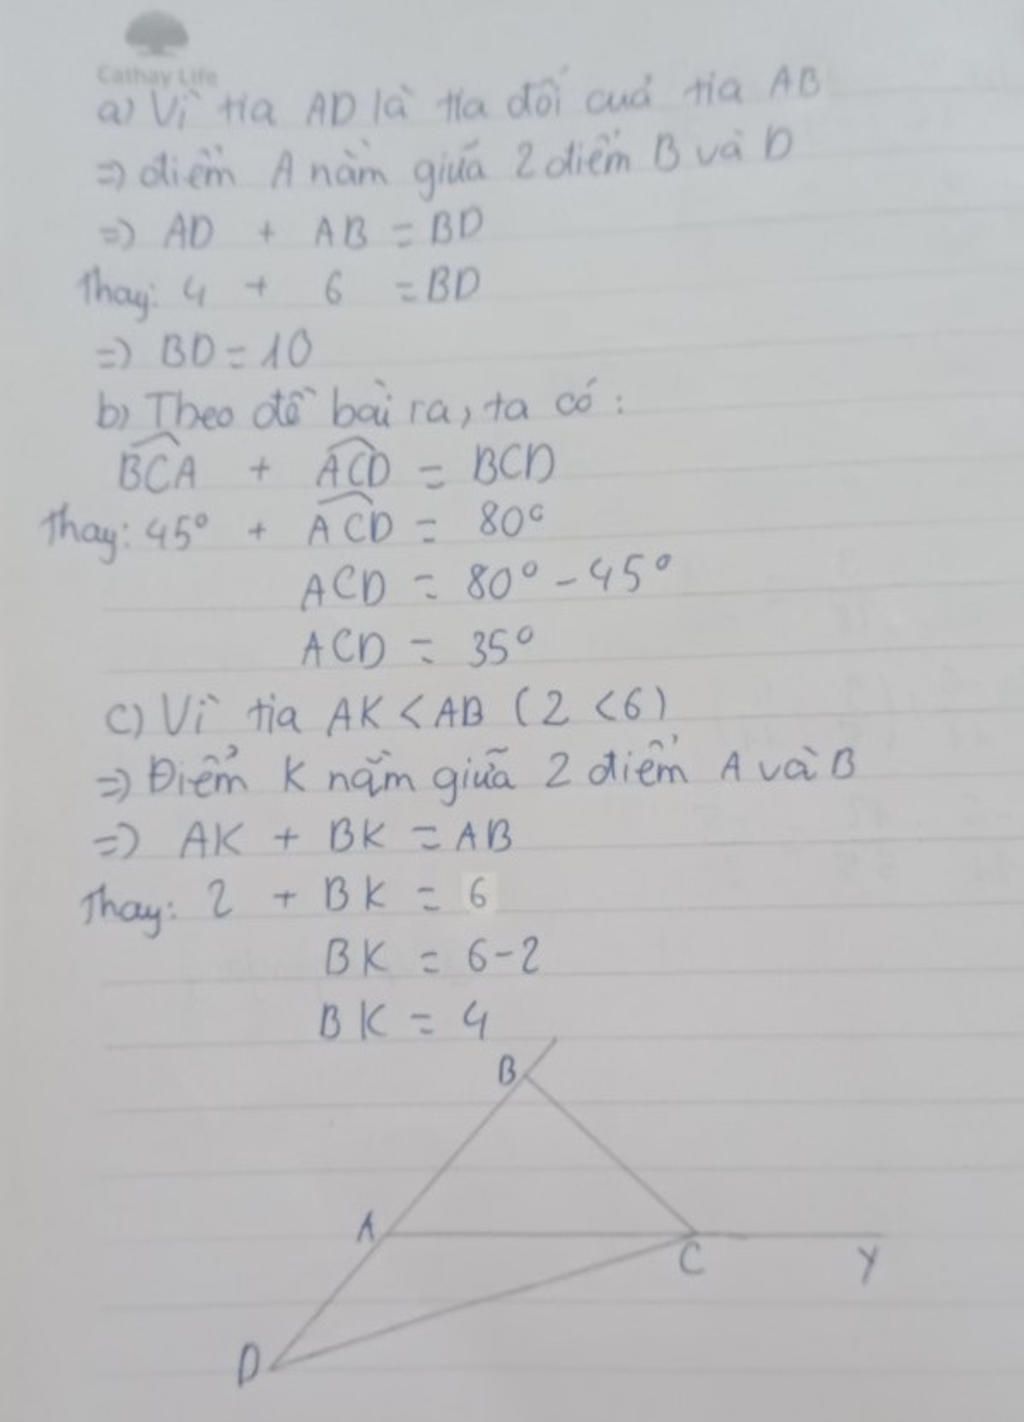 Cathay Life
a) Vì tia AD là tia đối cuả tia AB
=> điểm A nằm giữa 2 điểm B và D
=> AD + AB = BD
Thay: 4 + 6 = BD
=> BD = 10
b) Theo đề bài ra, ta có:
BCA + ACD = BCD
Thay: 45° + ACD = 80°
ACD = 80° - 45°
ACD = 35°
c) Vì tia AK < AB (2 < 6)
=> Điểm K nằm giữa 2 điểm A và B
=> AK + BK = AB
Thay: 2 + BK = 6
BK = 6 - 2
BK = 4
B
A
C
y
D